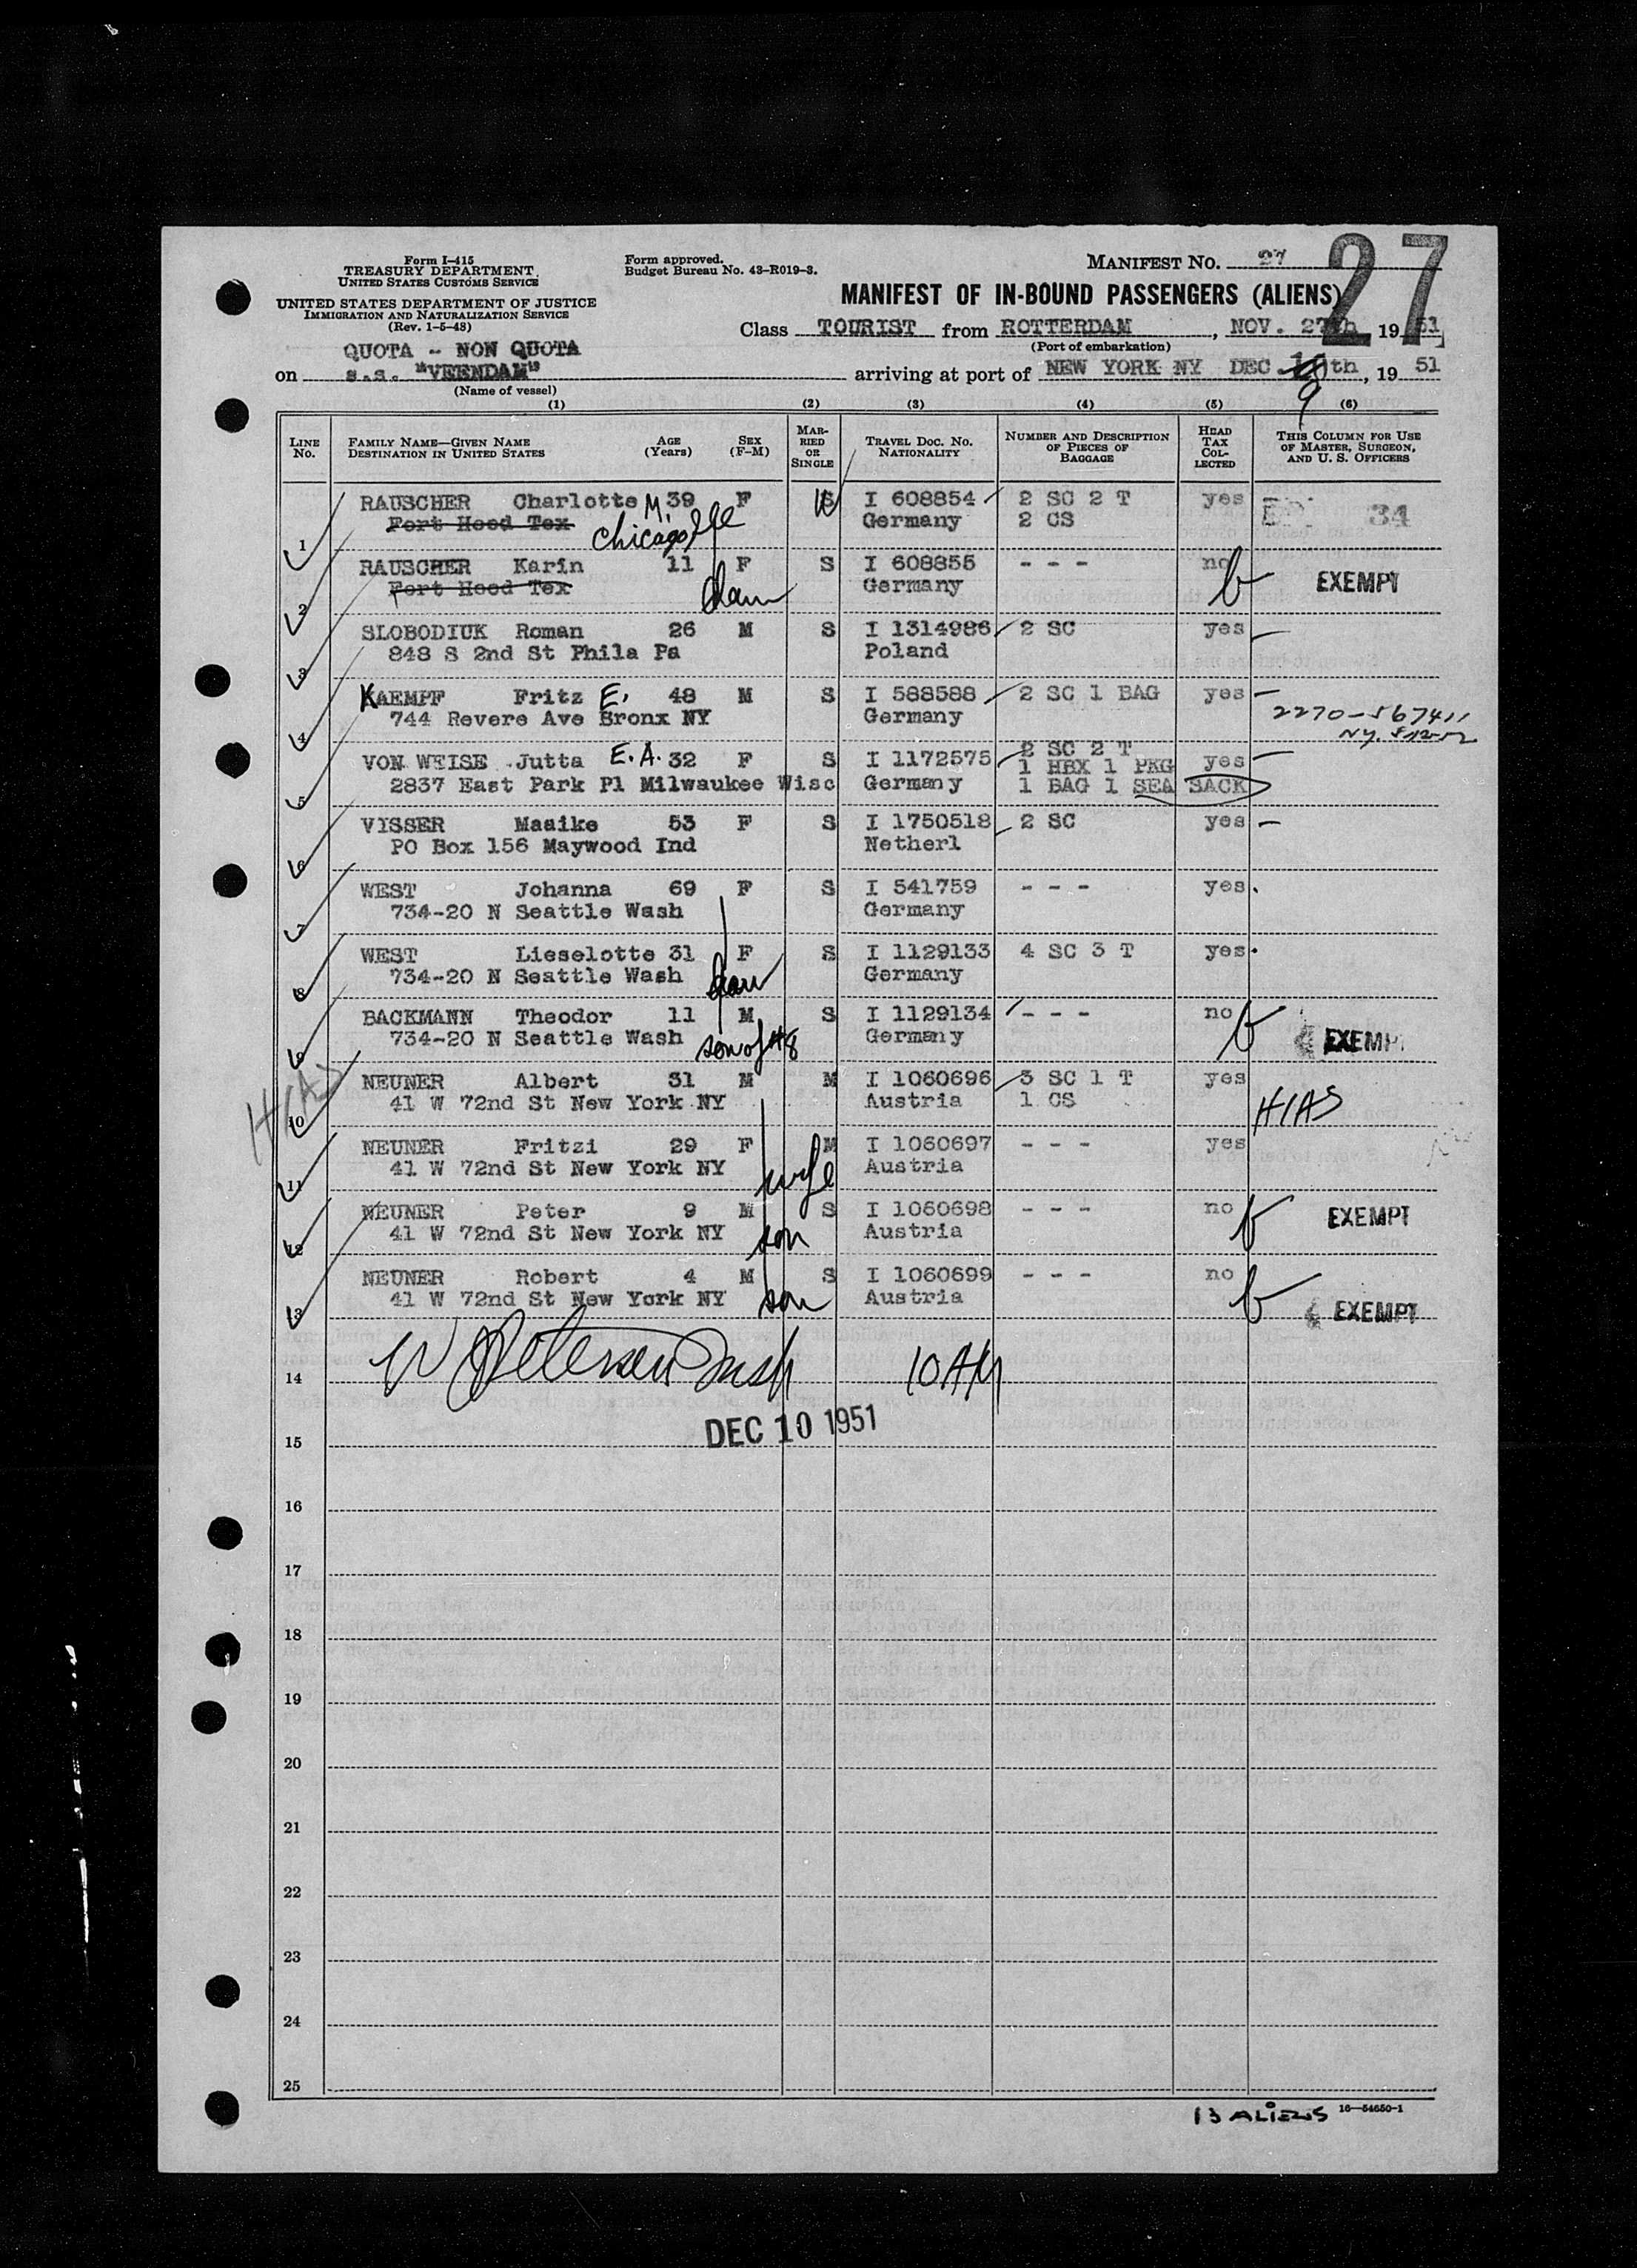 Form I-415
TREASURY DEPARTMENT
UNITED STATES CUSTOMS SERVICE
UNITED STATES DEPARTMENT OF JUSTICE
IMMIGRATION AND NATURALIZATION SERVICE
(Rev. 1-5-48)
Form approved.
Budget Bureau No. 43-R019-3.
MANIFEST NO. 27
27
MANIFEST OF IN-BOUND PASSENGERS (ALIENS)
Class TOURIST from ROTTERDAM, NOV. 27th 1951
(Port of embarkation)
QUOTA - NON QUOTA
on s.s. "VEENDAM" arriving at port of NEW YORK NY DEC 10th, 1951
9
(Name of vessel)
(1) (2) (3) (4) (5) (6)
LINE NO. FAMILY NAME—GIVEN NAME DESTINATION IN UNITED STATES AGE (Years) SEX (F-M) MARRIED OR SINGLE TRAVEL DOC. NO. NATIONALITY NUMBER AND DESCRIPTION OF PIECES OF BAGGAGE HEAD TAX COLLECTED THIS COLUMN FOR USE OF MASTER, SURGEON, AND U. S. OFFICERS
1 RAUSCHER Charlotte M. 39 F I 608854 2 SC 2 T yes 34
Fort Hood Tex Chicago Germany 2 CS
2 RAUSCHER Karin 11 F S I 608855 - - - no EXEMPT
Fort Hood Tex Germany
3 SLOBODIUK Roman 26 M S I 1314986 2 SC yes
848 S 2nd St Phila Pa Poland
4 KAEMPF Fritz E. 48 M S I 588588 2 SC 1 BAG yes
744 Revere Ave Bronx NY Germany
5 VON WEISE Jutta E.A. 32 F S I 1172575 2 SC 2 T yes
1 HBX 1 PKG
2837 East Park Pl Milwaukee Wisc Germany 1 BAG 1 SEA SACK
6 VISSER Maaike 53 F S I 1750518 2 SC yes
PO Box 156 Maywood Ind Netherl
7 WEST Johanna 69 F S I 541759 - - - yes
734-20 N Seattle Wash Germany
8 WEST Lieselotte 31 F S I 1129133 4 SC 3 T yes
734-20 N Seattle Wash Germany
9 BACKMANN Theodor 11 M S I 1129134 - - - no EXEMPT
734-20 N Seattle Wash son of #8 Germany
HIAS
10 NEUNER Albert 31 M M I 1060696 3 SC 1 T yes HIAS
41 W 72nd St New York NY Austria 1 CS
11 NEUNER Fritzi 29 F M I 1060697 - - - yes
41 W 72nd St New York NY wife Austria
12 NEUNER Peter 9 M S I 1060698 - - - no EXEMPT
41 W 72nd St New York NY son Austria
13 NEUNER Robert 4 M S I 1060699 - - - no EXEMPT
41 W 72nd St New York NY son Austria
14 10 AM
DEC 10 1951
15
16
17
18
19
20
21
22
23
24
25
13 ALIENS 16—54650-1